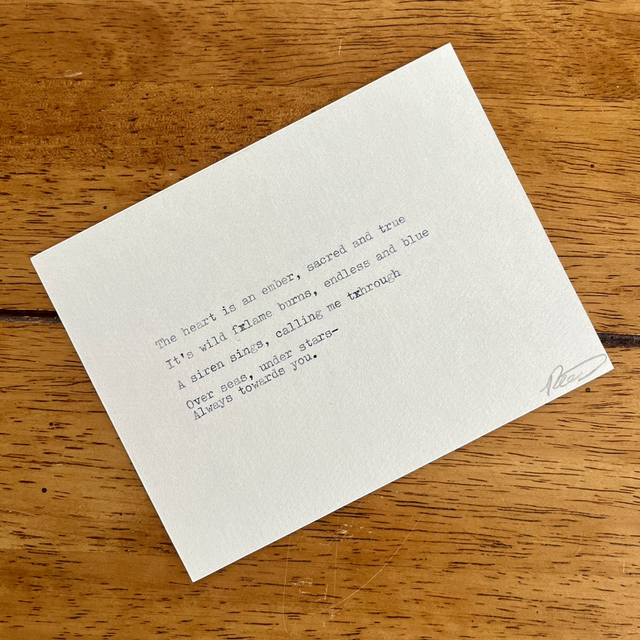 The heart is an ember, sacred and true
It's wild fxlame burns, endless and blue
A siren sings, calling me txhrough
Over seas, under stars—
Always towards you.